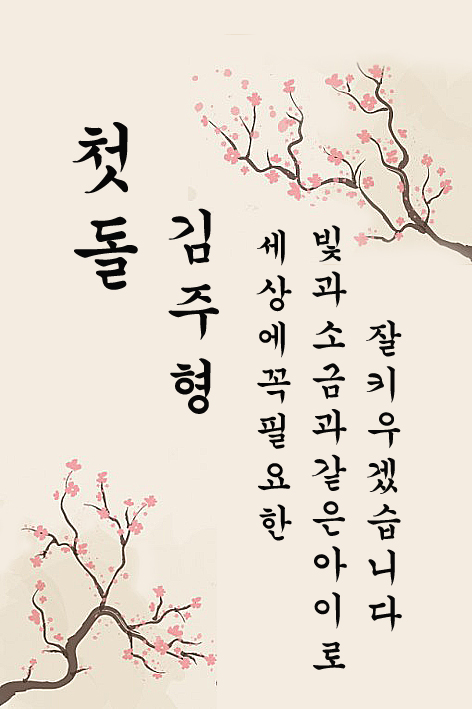 첫돌
김주형
세상에꼭필요한
빛과소금과같은아이로
잘키우겠습니다